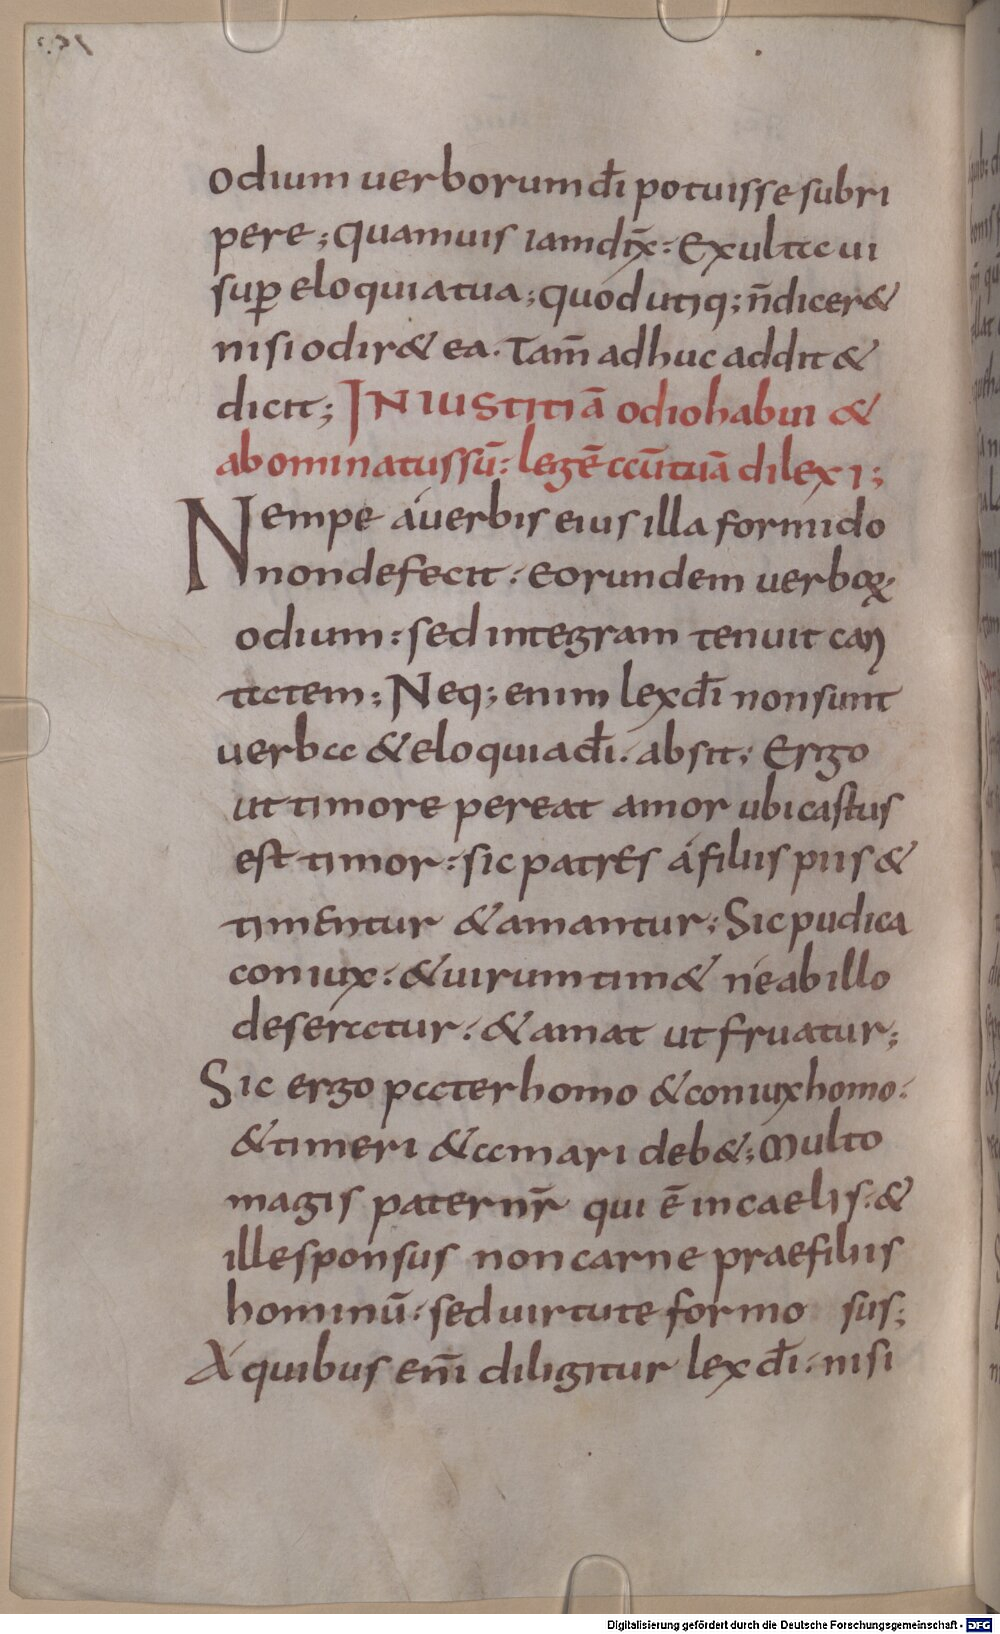 odium uerborum dı̄ potuisse subri
pere; quamuis iam dix̄: Exultaui
sup̱ eloquia tua; quod utiq; n̄ dicer&
nisi odir& ea. Tam̄ adhuc addit &
dicit; INIUSTITIā odio habui &
abominatus sū: legē aūt tuā dilexi;
Nempe á uerbis eius illa formido
non defecit: eorundem uerboꝝ
odium: sed integram tenuit cari
tatem; Neq; enim lex dı̄ non sunt
uerba & eloquia dı̄. absit; Ergo
ut timore pereat amor ubi castus
est timor: sic patres á filiis piis &
timentur & amantur; Sic pudica
coniux: & uirum tim& né ab illo
deseratur: & amat ut fruatur;
Sic ergo pater homo & coniux homo:
& timeri & amari deb&; Multo
magis pater nr̄ qui ē in caelis: &
ille sponsus non carne prae filiis
hominū: sed uirtute formo sus;
A quibus eni̅ diligitur lex dı̄: nisi
Digitalisierung gefördert durch die Deutsche Forschungsgemeinschaft - DFG